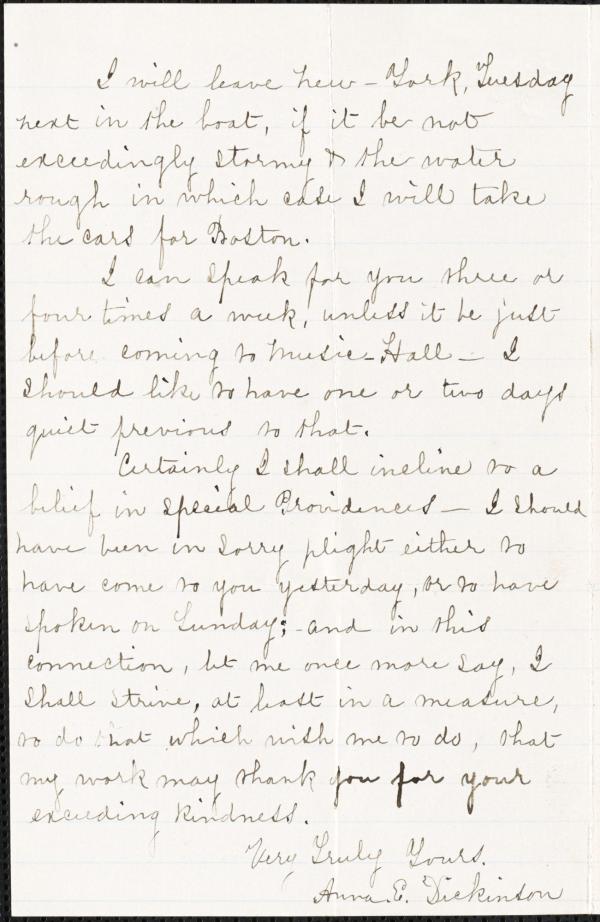 I will leave New-York, Tuesday
next in the boat, if it be not
exceedingly stormy & the water
rough in which case I will take
the cars for Boston.
I can speak for you three or
four times a week, unless it be just
before coming to Music-Hall - I
should like to have one or two days
quiet previous to that.
Certainly I shall incline to a
belief in special Providences - I should
have been in sorry plight either to
have come to you yesterday, or to have
spoken on Sunday; - and in this
connection, let me once more say, I
shall strive, at least in a measure,
to do that which wish me to do, that
my work may thank you for your
exceeding kindness.
Very Truly Yours.
Anna E. Dickinson